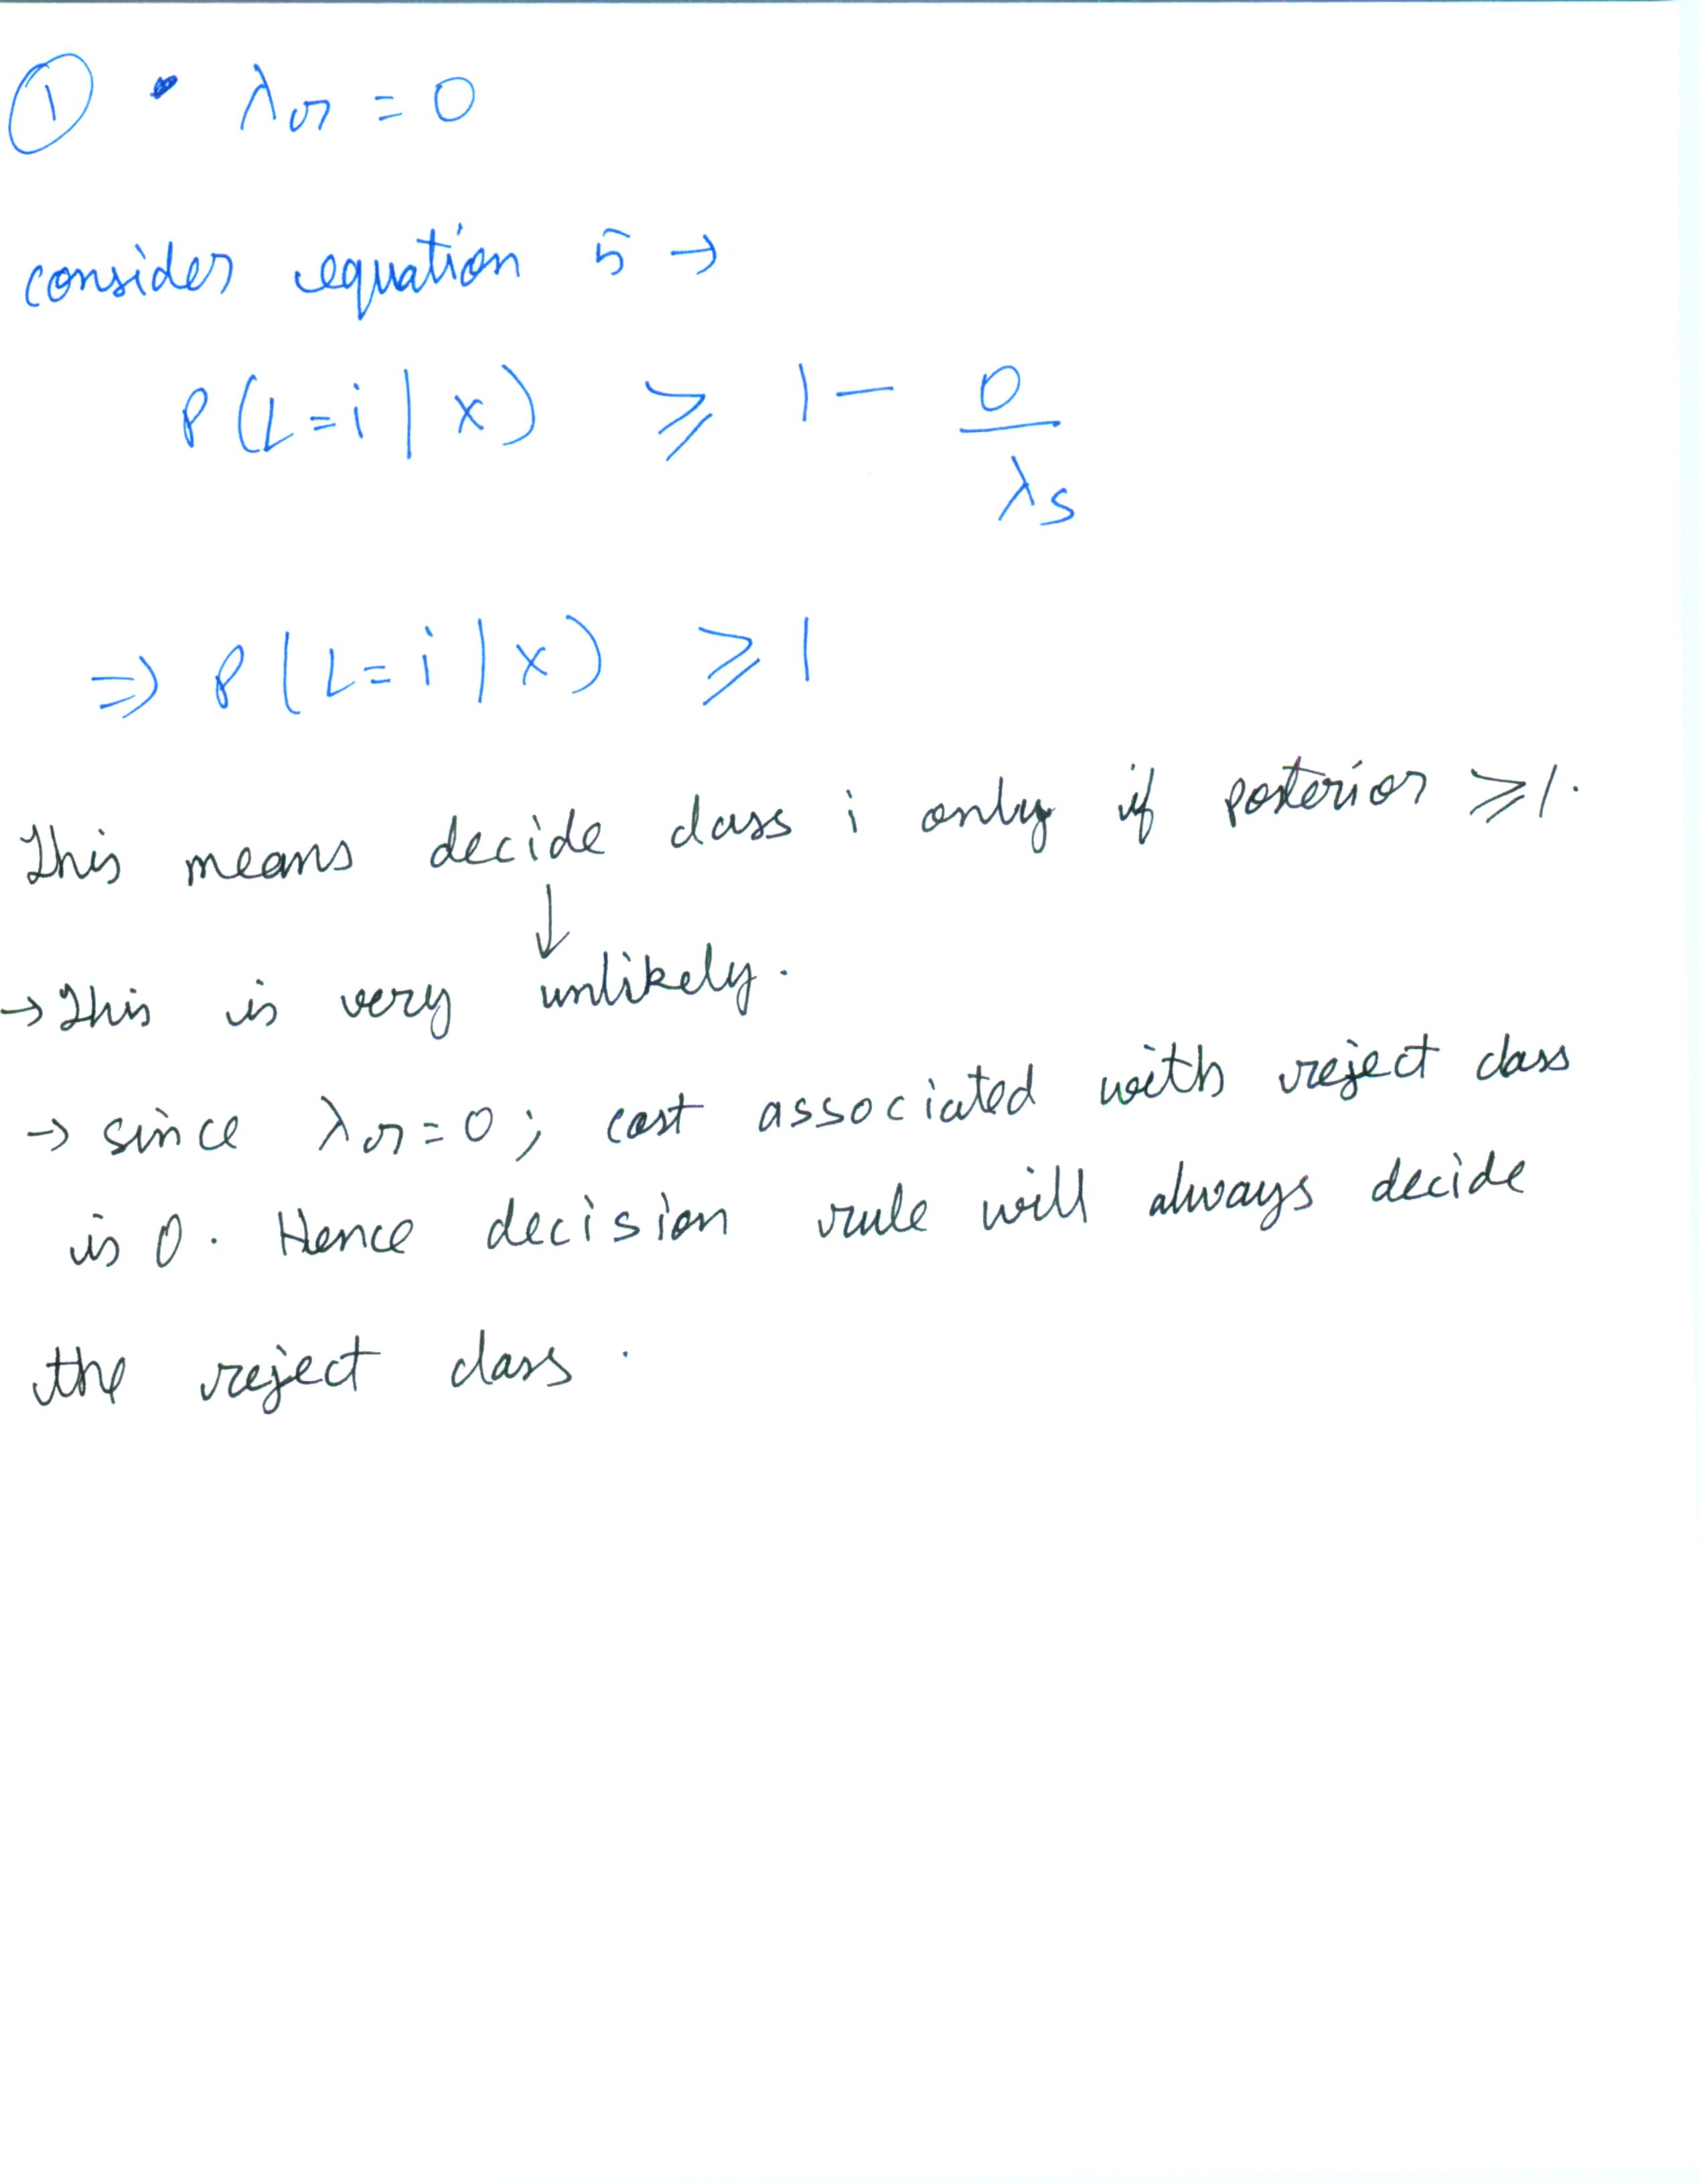 ① • λr = 0
consider equation 5 →
P(L=i | x) ≥ 1 - 0/λs
⇒ P(L=i | x) ≥ 1
This means decide class i only if posterior ≥ 1.
↓
→ This is very unlikely.
→ since λr=0; cost associated with reject class
is 0. Hence decision rule will always decide
the reject class.